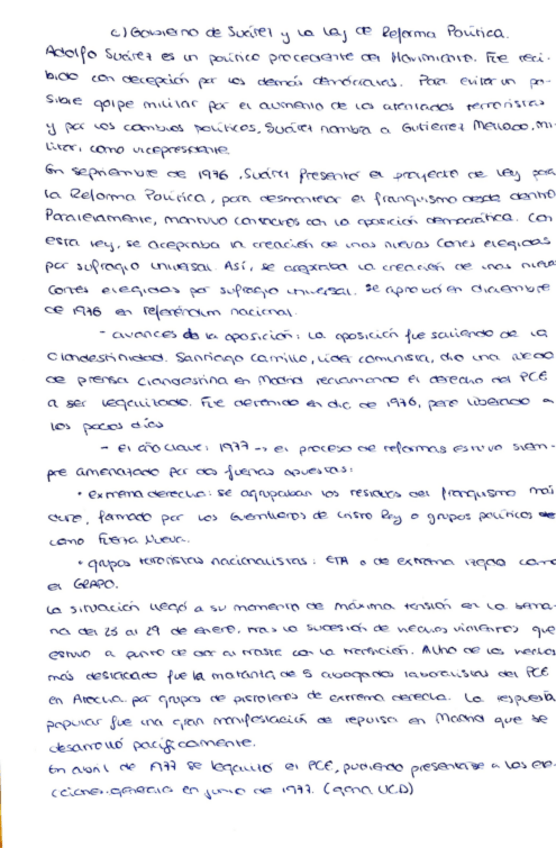 c) Gobierno de Suárez y la Ley de Reforma Política.
Adolfo Suárez es un político procedente del Movimiento. Fue reci-
bido con decepción por los demás demócratas. Para evitar un po-
sible golpe militar por el aumento de los atentados terroristas
y por los cambios políticos, Suárez nombra a Gutierrez Mellado, mi-
litar, como vicepresidente
En septiembre de 1976, Suárez presentó el proyecto de Ley para
la Reforma Política, para desmantelar el franquismo desde dentro
Paralelamente, mantuvo contactos con la oposición democrática. Con
esta ley, se aceptaba la creación de unas nuevas Cortes elegidas
por sufragio universal. Así, se aceptaba la creación de unas nuevas
Cortes elegidas por sufragio universal. Se aprobó en diciembre
de 1976 en referéndum nacional.
- avances de la oposición: La oposición fue saliendo de la
clandestinidad. Santiago Carrillo, líder comunista, dio una
de prensa clandestina en Madrid reclamando el derecho del PCE
a ser legalizado. Fue detenido en dic de 1976, pero liberado a
los pocos días
- El año clave: 1977 -> el proceso de reformas estuvo siem-
pre amenazado por dos fuerzas opuestas:
• extrema derecha: se agrupaban los residuos del franquismo más
duro, formado por los Guerrilleros de Cristo Rey o grupos políticos
como Fuerza Nueva.
• grupos terroristas nacionalistas: ETA o de extrema izqda como
el GRAPO.
La situación llegó a su momento de máxima tensión en la sema-
na del 23 al 29 de enero, tras la sucesión de hechos violentos que
estuvo a punto de dar al traste con la transición. Alno de los hechos
más destacado fue la matanza de 5 abogados laboralistas del PCE
en Atocha por grupos de pistoleros de extrema derecha. La respuesta
popular fue una gran manifestación de repulsa en Madrid que se
desarrolló pacíficamente.
En abril de 1977 se legalizó el PCE, pudiendo presentarse a las ele-
cciones generales en junio de 1977. (gana UCD)